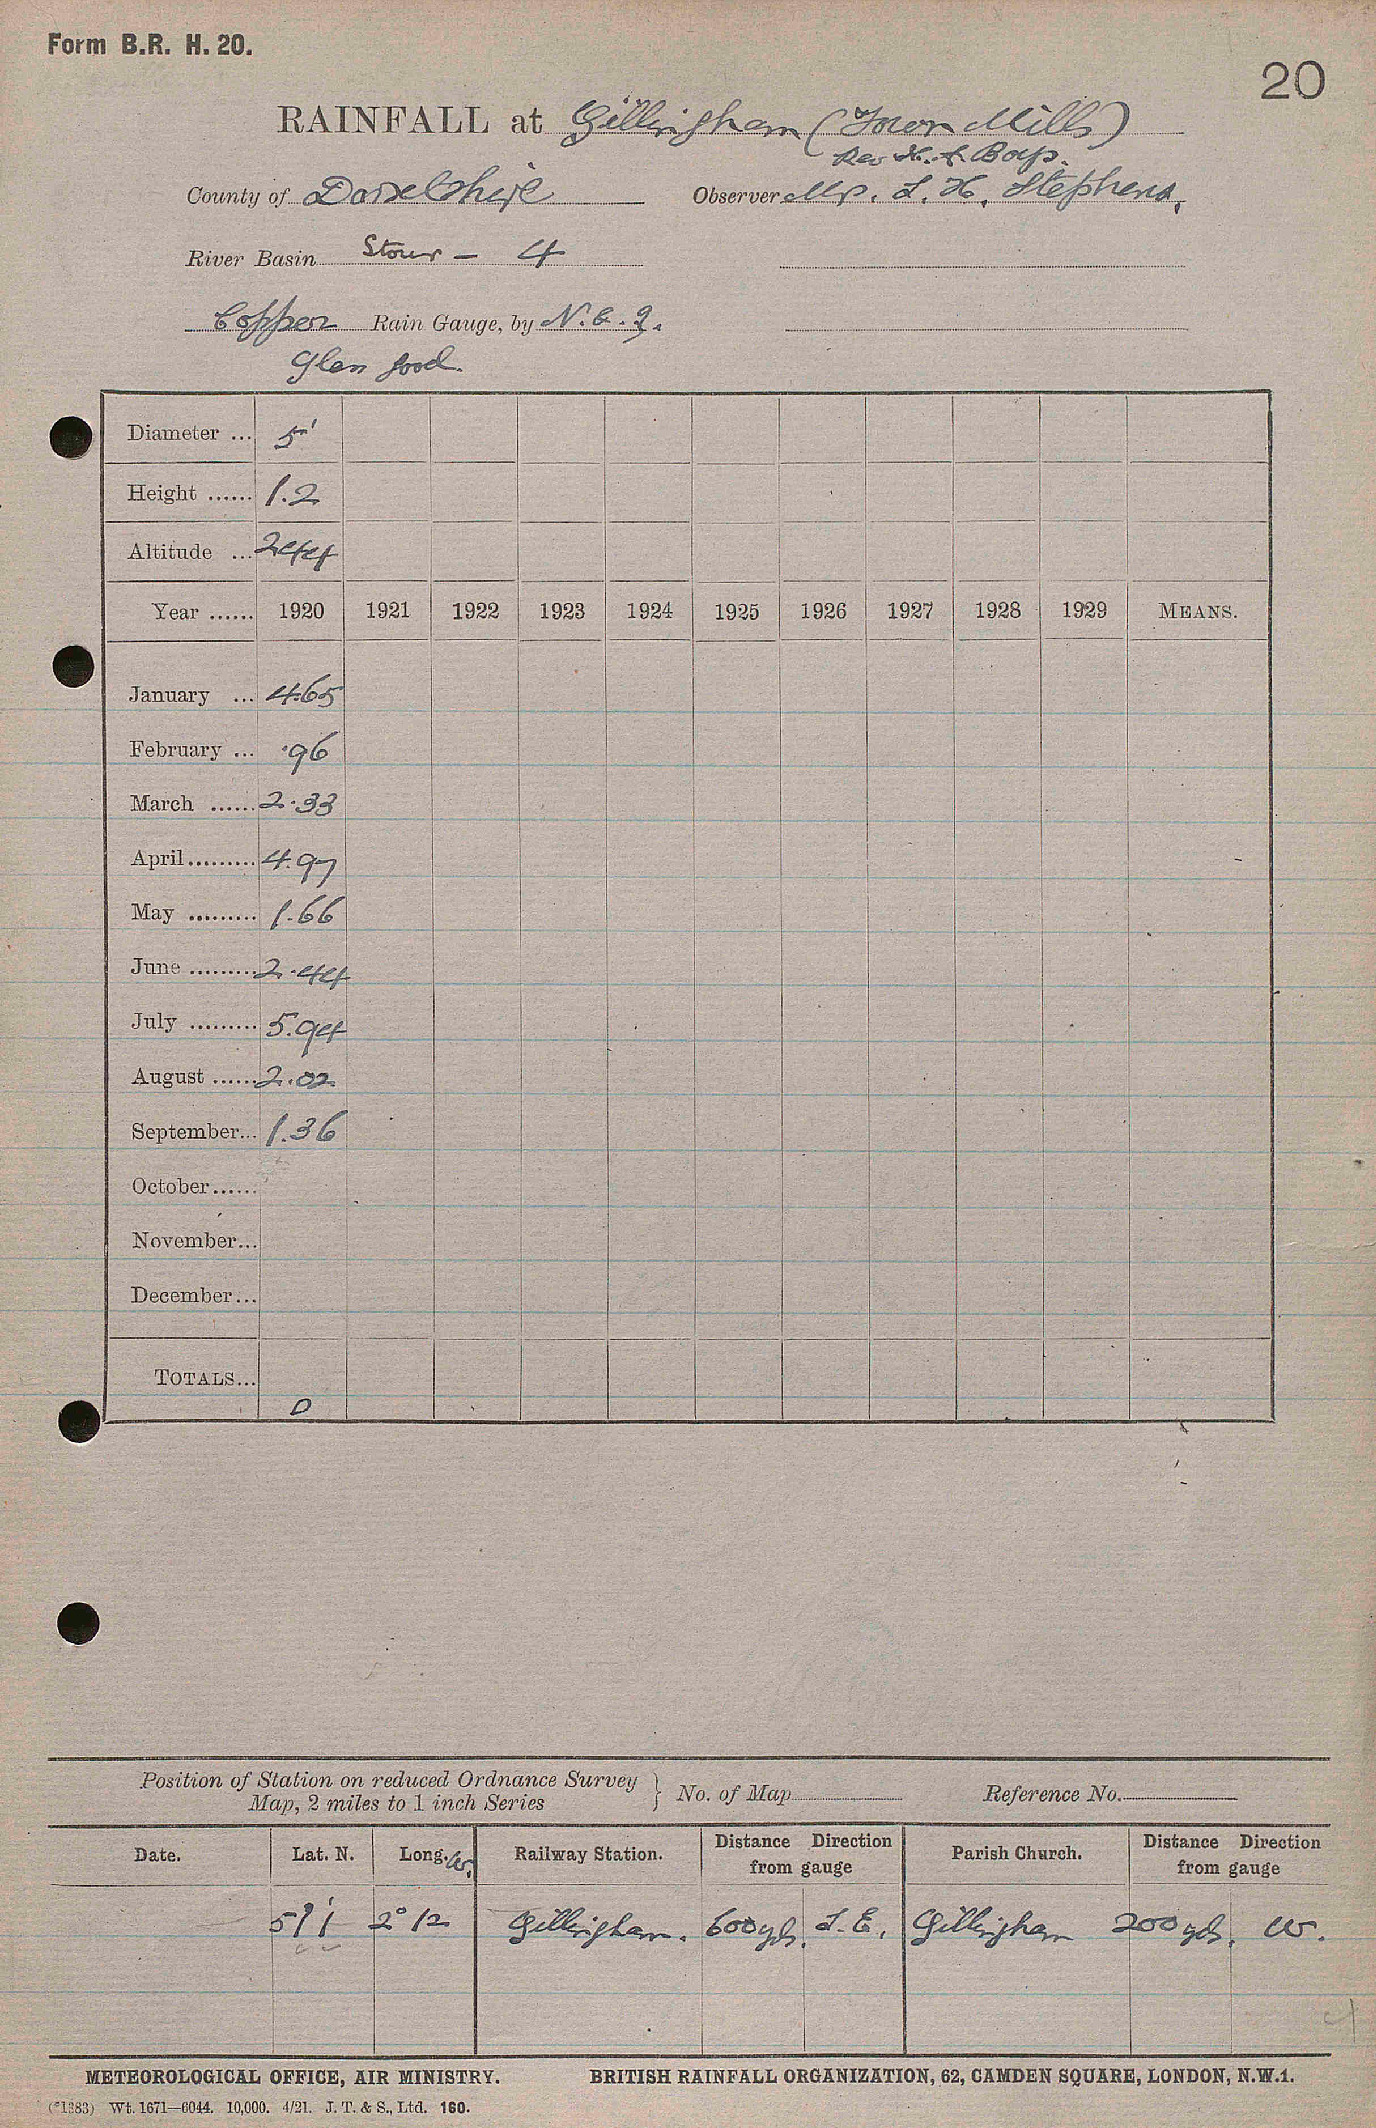 Form B.R. H. 20.
20
RAINFALL at Gillingham (Town Mills)
Rev H. A. Boys.
County of Dorsetshire Observer Mr. S. H. Stephens,
River Basin Stour - 4
Copper Rain Gauge, by N. & Z.
Glass good.
Diameter ... 5"
Height ...... 1.2
Altitude ... 244
Year ...... 1920 1921 1922 1923 1924 1925 1926 1927 1928 1929 MEANS.
January ... 4.65
February ... .96
March ...... 2.33
April ......... 4.97
May ......... 1.66
June ......... 2.44
July ......... 5.94
August ...... 2.02
September... 1.36
October......
November...
December...
TOTALS...
D
Position of Station on reduced Ordnance Survey Map, 2 miles to 1 inch Series } No. of Map Reference No.
Date. Lat. N. Long. W. Railway Station. Distance Direction from gauge Parish Church. Distance Direction from gauge
51° 1' 2° 12 Gillingham. 600 yds. S.E. Gillingham 200 yds. W.
METEOROLOGICAL OFFICE, AIR MINISTRY. BRITISH RAINFALL ORGANIZATION, 62, CAMDEN SQUARE, LONDON, N.W.1.
(*1383) Wt. 1671—6044. 10,000. 4/21. J. T. & S., Ltd. 160.